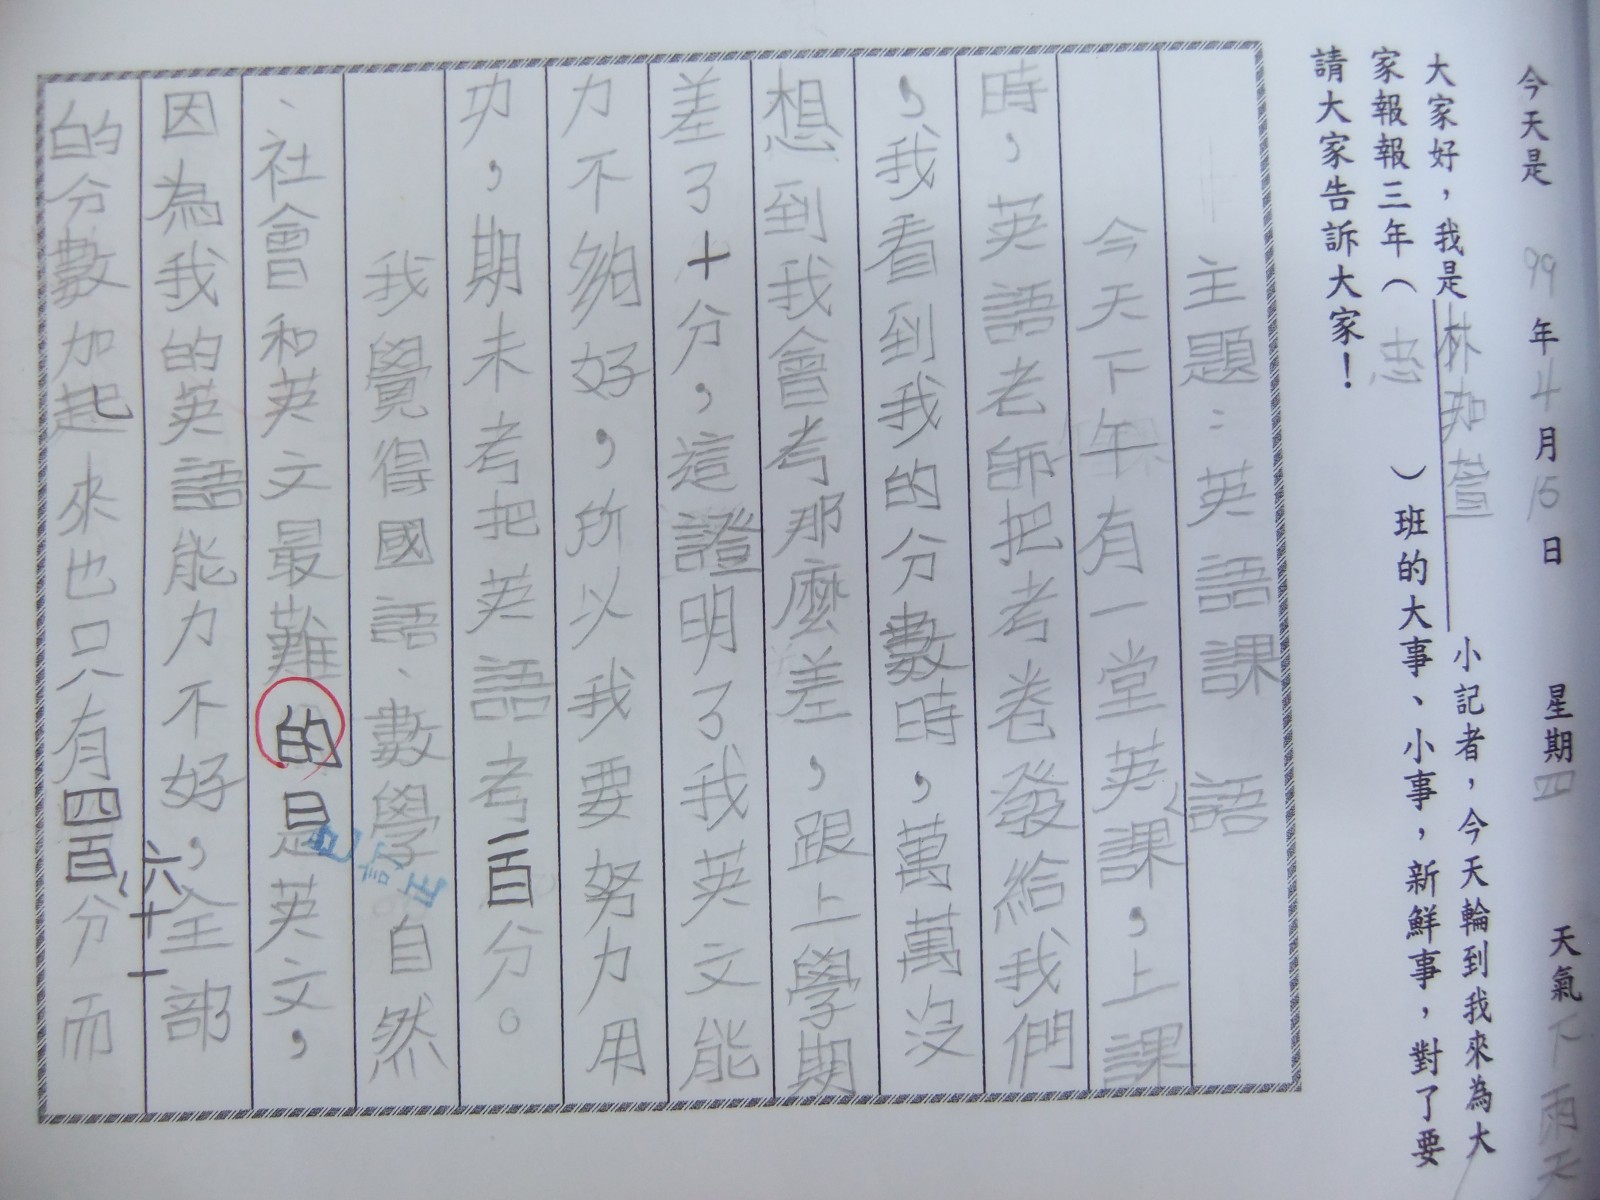 今天是 99 年 4 月 15 日 星期四 天氣下雨天
大家好，我是林知萱 小記者，今天輪到我來為大
家報報三年（忠）班的大事、小事，新鮮事，對了要
請大家告訴大家！
主題：英語課
今天下午有一堂英語課，上課
時，英語老師把考卷發給我們
，我看到我的分數時，萬萬沒
想到我會考那麼差，跟上學期
差了十分，這證明了我英文能
力不夠好，所以我要努力用
功，期末考把英語考一百分。
我覺得國語、數學、自然
、社會和英文最難的是英文，
因為我的英語能力不好，全部
的分數加起來也只有四百六十一分而
已訂正